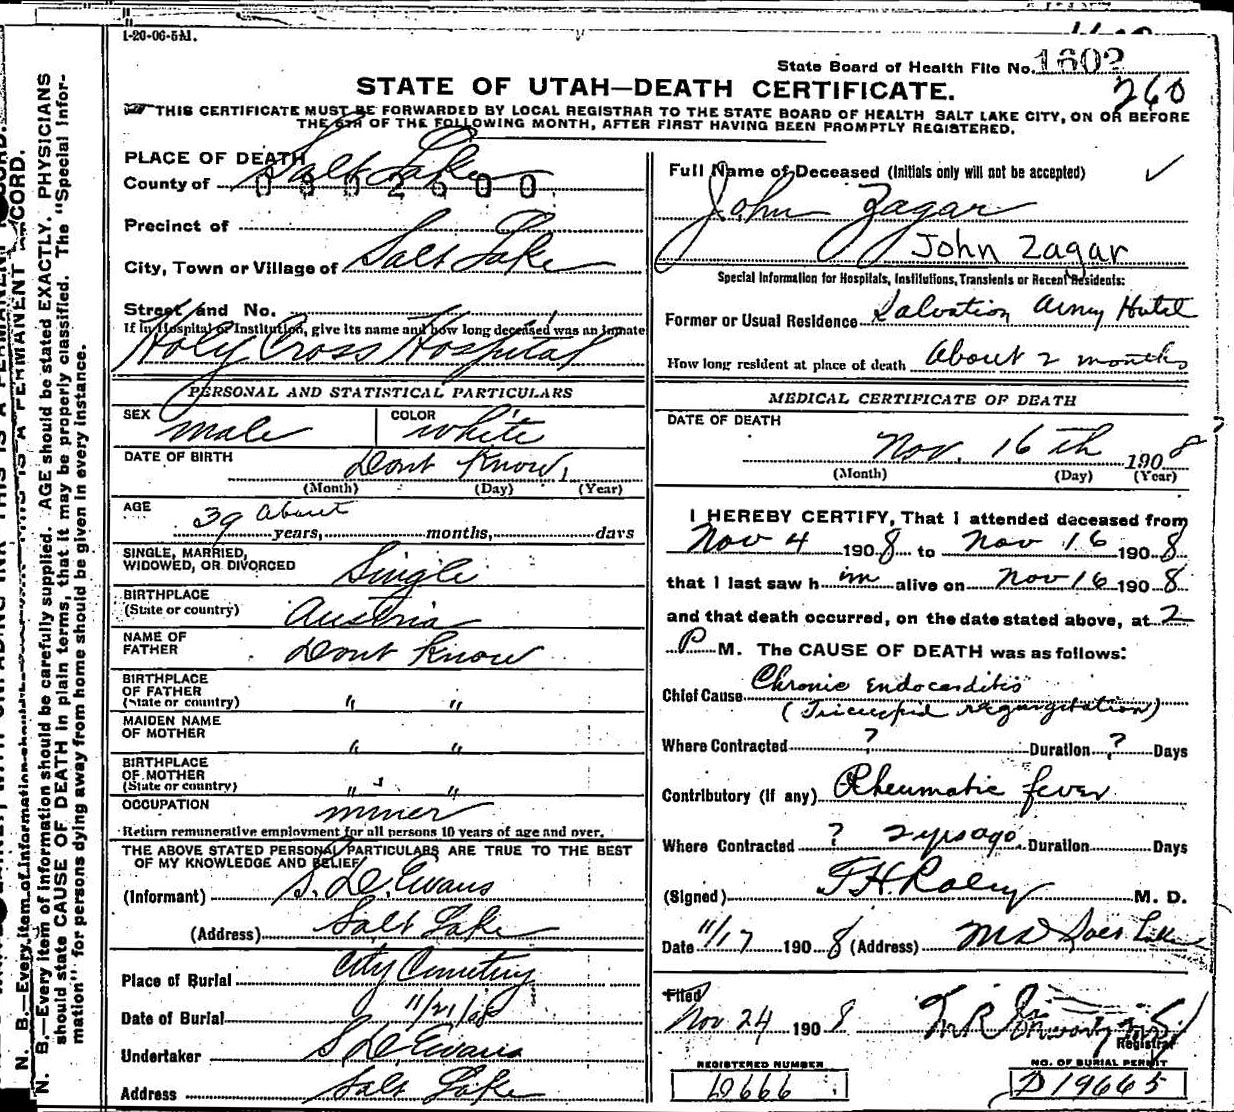 1-20-06-5M.
State Board of Health File No. 1602
260
STATE OF UTAH—DEATH CERTIFICATE.
THIS CERTIFICATE MUST BE FORWARDED BY LOCAL REGISTRAR TO THE STATE BOARD OF HEALTH SALT LAKE CITY, ON OR BEFORE
THE 5TH OF THE FOLLOWING MONTH, AFTER FIRST HAVING BEEN PROMPTLY REGISTERED.
PLACE OF DEATH
County of Salt Lake
0302600
Precinct of
City, Town or Village of Salt Lake
Street and No.
If in Hospital or Institution, give its name and how long deceased was an inmate
Holy Cross Hospital
PERSONAL AND STATISTICAL PARTICULARS
SEX male COLOR white
DATE OF BIRTH Dont Know
(Month) (Day) (Year)
AGE 39 about years, months, days
SINGLE, MARRIED,
WIDOWED, OR DIVORCED Single
BIRTHPLACE
(State or country) Austria
NAME OF
FATHER Dont Know
BIRTHPLACE
OF FATHER
(State or country) " "
MAIDEN NAME
OF MOTHER " "
BIRTHPLACE
OF MOTHER
(State or country) " "
OCCUPATION miner
Return remunerative employment for all persons 10 years of age and over.
THE ABOVE STATED PERSONAL PARTICULARS ARE TRUE TO THE BEST
OF MY KNOWLEDGE AND BELIEF
(Informant) S. D. Evans
(Address) Salt Lake
Place of Burial City Cemetery
Date of Burial 11/21/08
Undertaker S D Evans
Address Salt Lake
Full Name of Deceased (Initials only will not be accepted)
John Zagar
John Zagar
Special Information for Hospitals, Institutions, Transients or Recent Residents:
Former or Usual Residence Salvation Army Hotel
How long resident at place of death About 2 months
MEDICAL CERTIFICATE OF DEATH
DATE OF DEATH
Nov. 16th 1908
(Month) (Day) (Year)
I HEREBY CERTIFY, That I attended deceased from
Nov 4 1908 to Nov 16 1908
that I last saw him alive on Nov 16 1908
and that death occurred, on the date stated above, at 2
P M. The CAUSE OF DEATH was as follows:
Chief Cause Chronic Endocarditis
(Tricuspid regurgitation)
Where Contracted ? Duration ? Days
Contributory (if any) Rheumatic fever
Where Contracted ? 2 yrs ago Duration Days
(Signed) M. D.
Date 11/17 1908 (Address)
Filed
Nov 24 1908
Registrar
REGISTERED NUMBER
NO. OF BURIAL PERMIT
D19665
N. B.—Every item of information should be carefully supplied. AGE should be stated EXACTLY. PHYSICIANS
should state CAUSE OF DEATH in plain terms, that it may be properly classified. The "Special Infor-
mation" for persons dying away from home should be given in every instance.